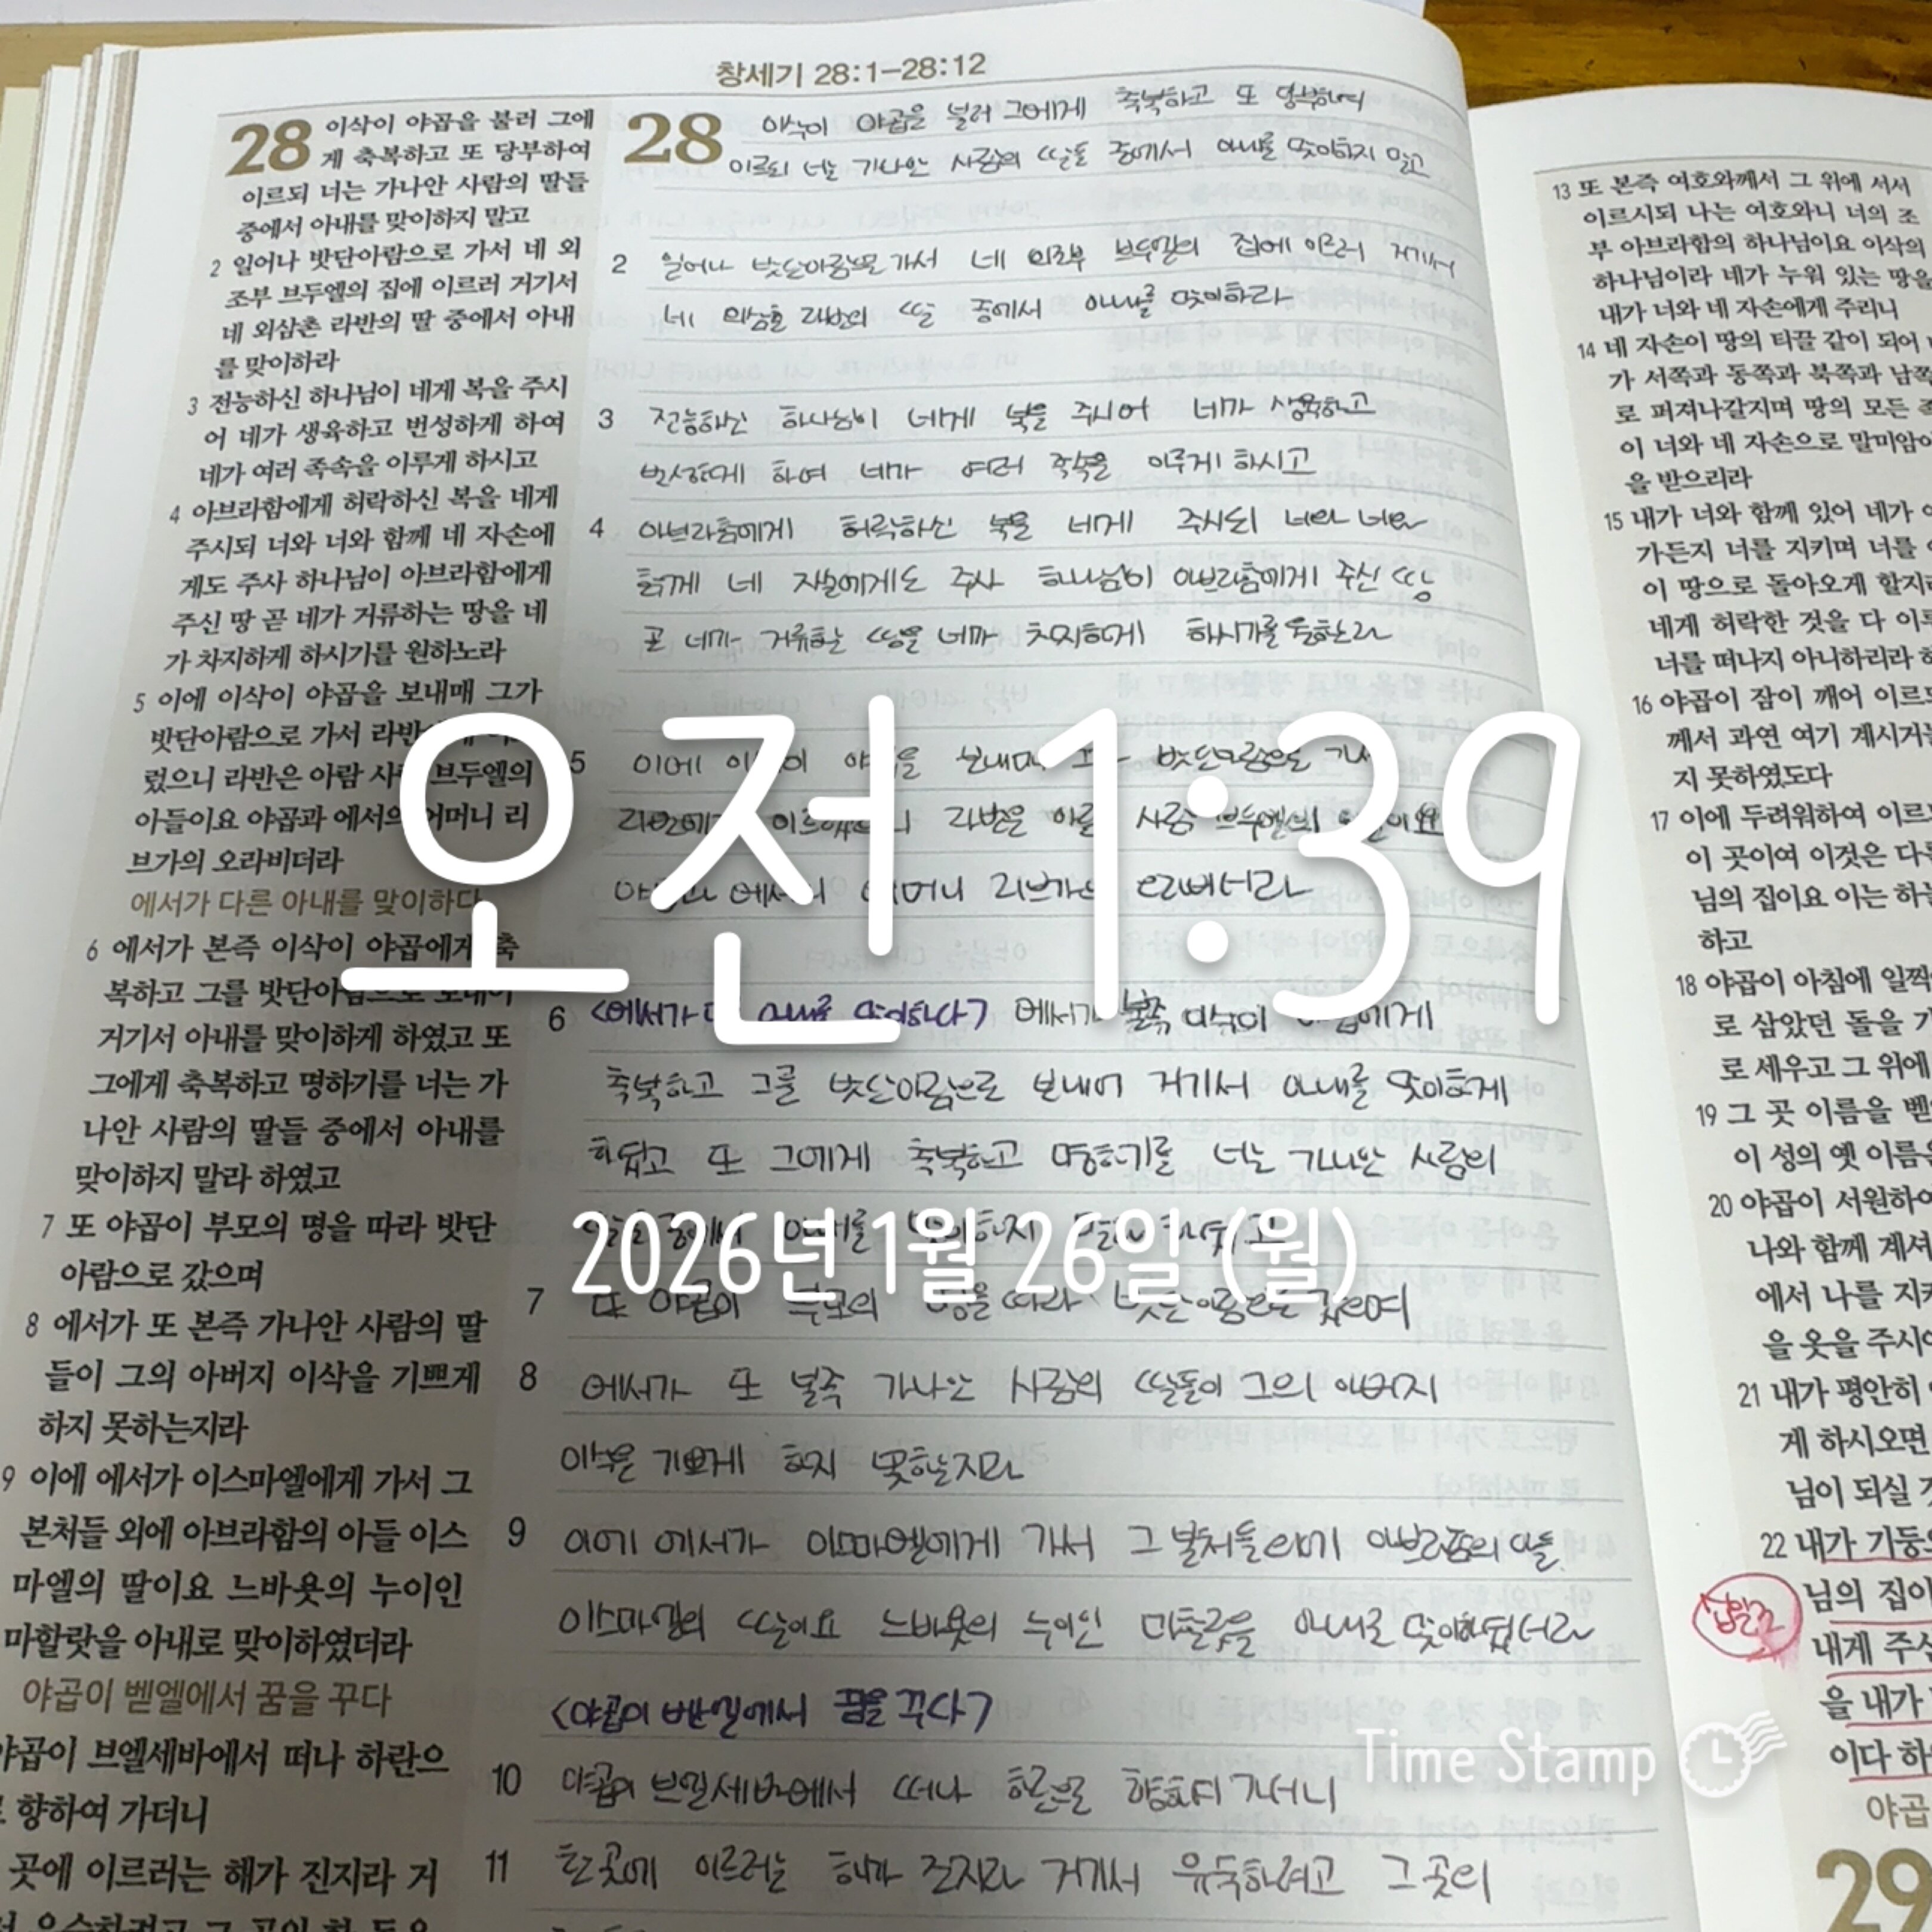 창세기 28:1-28:12
28 이삭이 야곱을 불러 그에
게 축복하고 또 당부하여
이르되 너는 가나안 사람의 딸들
중에서 아내를 맞이하지 말고
2 일어나 밧단아람으로 가서 네 외
조부 브두엘의 집에 이르러 거기서
네 외삼촌 라반의 딸 중에서 아내
를 맞이하라
3 전능하신 하나님이 네게 복을 주시
어 네가 생육하고 번성하게 하여
네가 여러 족속을 이루게 하시고
4 아브라함에게 허락하신 복을 네게
주시되 너와 너와 함께 네 자손에
게도 주사 하나님이 아브라함에게
주신 땅 곧 네가 거류하는 땅을 네
가 차지하게 하시기를 원하노라
5 이에 이삭이 야곱을 보내매 그가
밧단아람으로 가서 라반
렀으니 라반은 아람 사람 브두엘의
아들이요 야곱과 에서의 어머니 리
브가의 오라비더라
에서가 다른 아내를 맞이하다
6 에서가 본즉 이삭이 야곱에게 축
복하고 그를 밧단아람으로 보내어
거기서 아내를 맞이하게 하였고 또
그에게 축복하고 명하기를 너는 가
나안 사람의 딸들 중에서 아내를
맞이하지 말라 하였고
7 또 야곱이 부모의 명을 따라 밧단
아람으로 갔으며
8 에서가 또 본즉 가나안 사람의 딸
들이 그의 아버지 이삭을 기쁘게
하지 못하는지라
9 이에 에서가 이스마엘에게 가서 그
본처들 외에 아브라함의 아들 이스
마엘의 딸이요 느바욧의 누이인
마할랏을 아내로 맞이하였더라
야곱이 벧엘에서 꿈을 꾸다
야곱이 브엘세바에서 떠나 하란으
로 향하여 가더니
곳에 이르러는 해가 진지라 거
28 이삭이 야곱을 불러 그에게 축복하고 또 당부하여
이르되 너는 가나안 사람의 딸들 중에서 아내를 맞이하지 말고
2 일어나 밧단아람으로 가서 네 외조부 브두엘의 집에 이르러 거기서
네 외삼촌 라반의 딸 중에서 아내를 맞이하라
3 전능하신 하나님이 네게 복을 주시어 네가 생육하고
번성하게 하여 네가 여러 족속을 이루게 하시고
4 아브라함에게 허락하신 복을 네게 주시되 너와 너와
함께 네 자손에게도 주사 하나님이 아브라함에게 주신 땅
곧 네가 거류하는 땅을 네가 차지하게 하시기를
5 이에 야곱을 보내매 밧단아람으로 가서
라반은 사람 브두엘의
에서의 어머니 리브가의 오라비더라
6 <에서가 아내를 맞이하다> 에서가 본즉 이삭이 야곱에게
축복하고 그를 밧단아람으로 보내어 거기서 아내를 맞이하게
하였고 또 그에게 축복하고 명하기를 너는 가나안 사람의
7 또 야곱이 부모의 명을 따라 밧단아람으로 갔으며
8 에서가 또 본즉 가나안 사람의 딸들이 그의 아버지
이삭을 기쁘게 하지 못하는지라
9 이에 에서가 이스마엘에게 가서 그 본처들 외에 아브라함의 아들
이스마엘의 딸이요 느바욧의 누이인 마할랏을 아내로 맞이하였더라
<야곱이 벧엘에서 꿈을 꾸다>
10 야곱이 브엘세바에서 떠나 하란으로 향하여 가더니
11 한 곳에 이르러는 해가 진지라 거기서 유숙하려고 그 곳의
오전 1:39
2026년 1월 26일 (월)
Time Stamp
13 또 본즉 여호와께서 그 위에 서서
이르시되 나는 여호와니 너의 조
부 아브라함의 하나님이요 이삭의
하나님이라 네가 누워 있는 땅을
내가 너와 네 자손에게 주리니
14 네 자손이 땅의 티끌 같이 되어
가 서쪽과 동쪽과 북쪽과 남쪽
로 퍼져나갈지며 땅의 모든
이 너와 네 자손으로 말미암아
을 받으리라
15 내가 너와 함께 있어 네가
가든지 너를 지키며 너를
이 땅으로 돌아오게 할지라
네게 허락한 것을 다 이루
너를 떠나지 아니하리라
16 야곱이 잠이 깨어 이르되
께서 과연 여기 계시거늘
지 못하였도다
17 이에 두려워하여 이르되
이 곳이여 이것은 다른
님의 집이요 이는 하늘
하고
18 야곱이 아침에 일찍
로 삼았던 돌을
로 세우고 그 위에
19 그 곳 이름을 벧엘
이 성의 옛 이름은
20 야곱이 서원하여
나와 함께 계셔
에서 나를 지키
을 옷을 주시어
21 내가 평안히
게 하시오면
님이 되실
22 내가 기둥으
님의 집이
내게 주신
을 내가
이다 하
야곱
29